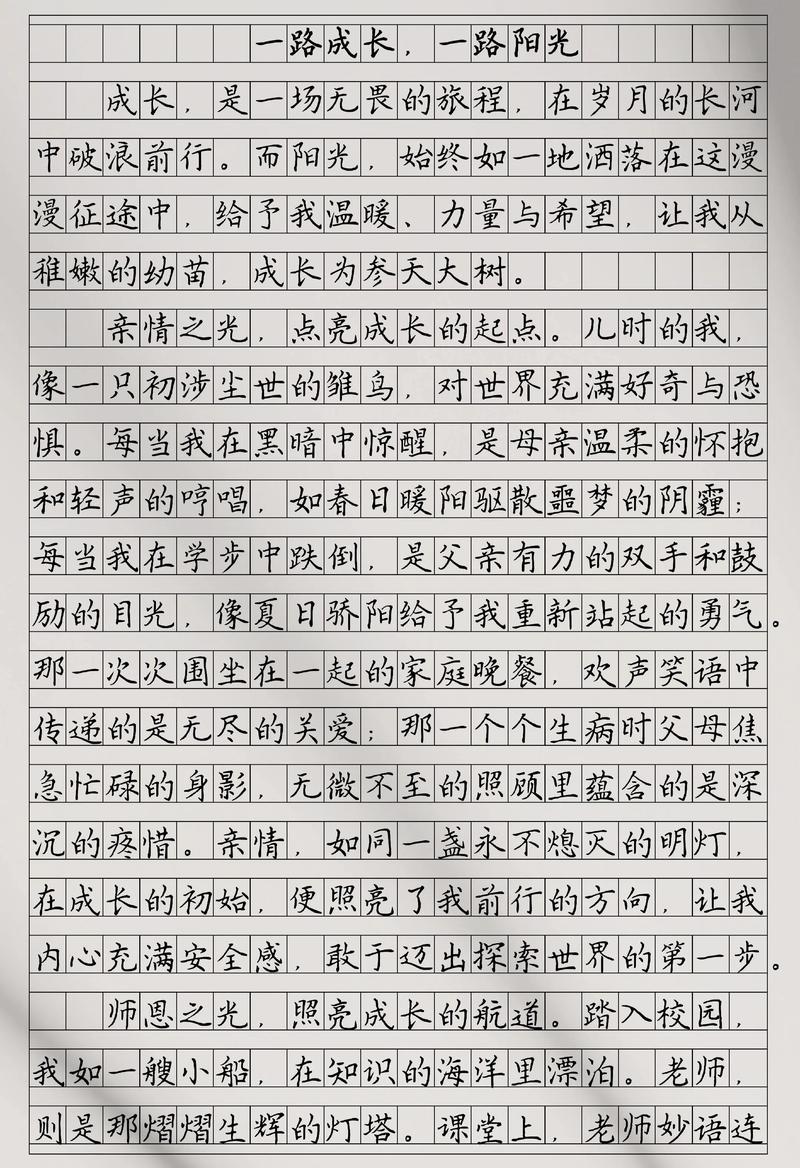 一路成长，一路阳光
成长，是一场无畏的旅程，在岁月的长河
中破浪前行。而阳光，始终如一地洒落在这漫
漫征途中，给予我温暖、力量与希望，让我从
稚嫩的幼苗，成长为参天大树。
亲情之光，点亮成长的起点。儿时的我，
像一只初涉尘世的雏鸟，对世界充满好奇与恐
惧。每当我在黑暗中惊醒，是母亲温柔的怀抱
和轻声的哼唱，如春日暖阳驱散噩梦的阴霾；
每当我在学步中跌倒，是父亲有力的双手和鼓
励的目光，像夏日骄阳给予我重新站起的勇气。
那一次次围坐在一起的家庭晚餐，欢声笑语中
传递的是无尽的关爱；那一个个生病时父母焦
急忙碌的身影，无微不至的照顾里蕴含的是深
沉的疼惜。亲情，如同一盏永不熄灭的明灯，
在成长的初始，便照亮了我前行的方向，让我
内心充满安全感，敢于迈出探索世界的第一步。
师恩之光，照亮成长的航道。踏入校园，
我如一艘小船，在知识的海洋里漂泊。老师，
则是那熠熠生辉的灯塔。课堂上，老师妙语连